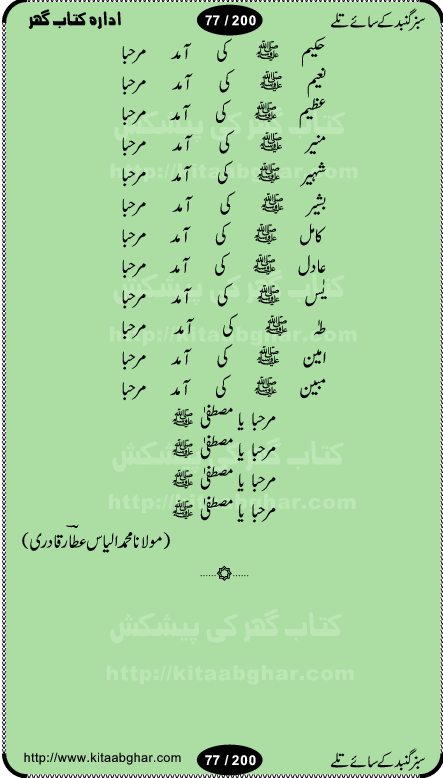 سبز گنبد کے سائے تلے 77 / 200 ادارہ کتاب گھر
حکیم ﷺ کی آمد مرحبا
نعیم ﷺ کی آمد مرحبا
عظیم ﷺ کی آمد مرحبا
کتاب گھر کی پیشکش
منیر ﷺ کی آمد مرحبا
شہیر ﷺ کی آمد مرحبا
http://kitaabghar.com
بشیر ﷺ کی آمد مرحبا
کامل ﷺ کی آمد مرحبا
عادل ﷺ کی آمد مرحبا
کتاب گھر کی پیشکش
یٰس ﷺ کی آمد مرحبا
طہٰ ﷺ کی آمد مرحبا
http://kitaabghar.com
امین ﷺ کی آمد مرحبا
مبین ﷺ کی آمد مرحبا
مرحبا یا مصطفیٰ ﷺ
مرحبا یا مصطفیٰ ﷺ
کتاب گھر کی پیشکش
مرحبا یا مصطفیٰ ﷺ
http://kitaabghar.com
مرحبا یا مصطفیٰ ﷺ
(مولانا محمد الیاس عطار قادری)
کتاب گھر کی پیشکش
http://kitaabghar.com
سبز گنبد کے سائے تلے 77 / 200 http://www.kitaabghar.com